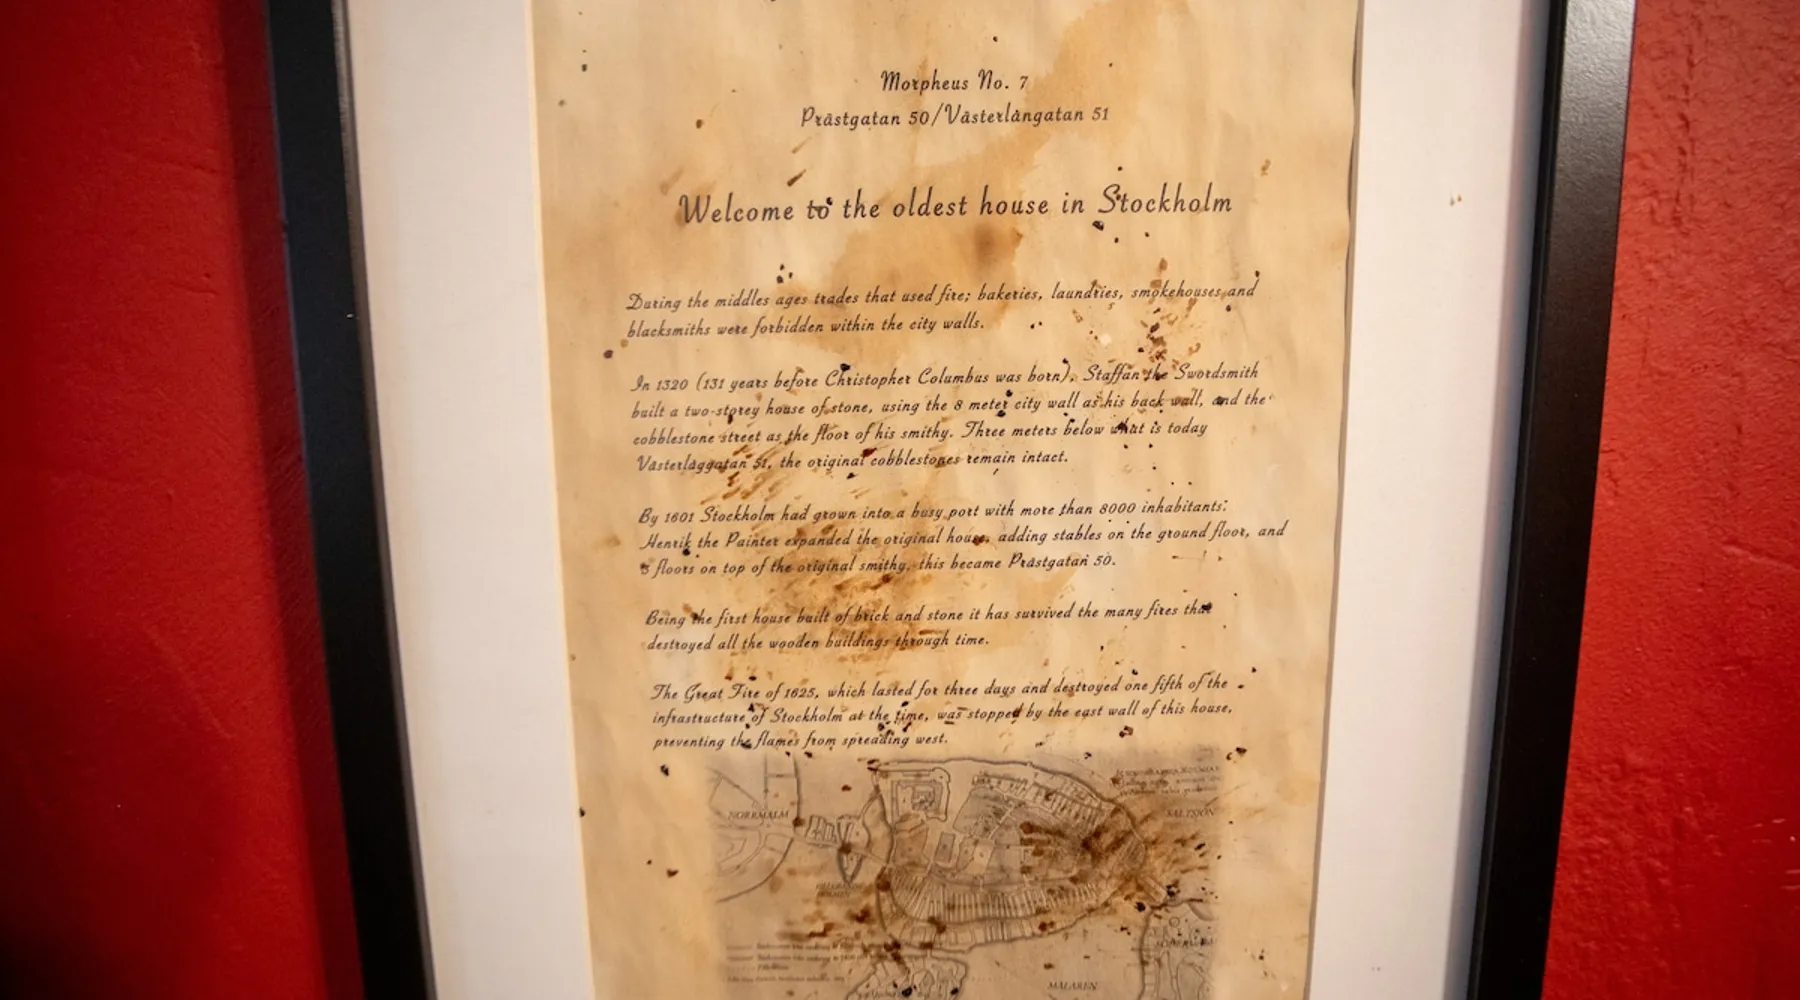 Morpheus No. 7
Prästgatan 50/Västerlångatan 51
Welcome to the oldest house in Stockholm
During the middles ages trades that used fire; bakeries, laundries, smokehouses and
blacksmiths were forbidden within the city walls.
In 1320 (131 years before Christopher Columbus was born), Staffan the Swordsmith
built a two-storey house of stone, using the 8 meter city wall as his back wall, and the
cobblestone street as the floor of his smithy. Three meters below what is today
Västerlåggatan 51, the original cobblestones remain intact.
By 1601 Stockholm had grown into a busy port with more than 8000 inhabitants:
Henrik the Painter expanded the original house, adding stables on the ground floor, and
floors on top of the original smithy, this became Prästgatan 50.
Being the first house built of brick and stone it has survived the many fires that
destroyed all the wooden buildings through time.
The Great Fire of 1625, which lasted for three days and destroyed one fifth of the
infrastructure of Stockholm at the time, was stopped by the east wall of this house,
preventing the flames from spreading west.
NORRMALM
SALTSJÖN
MÄLAREN